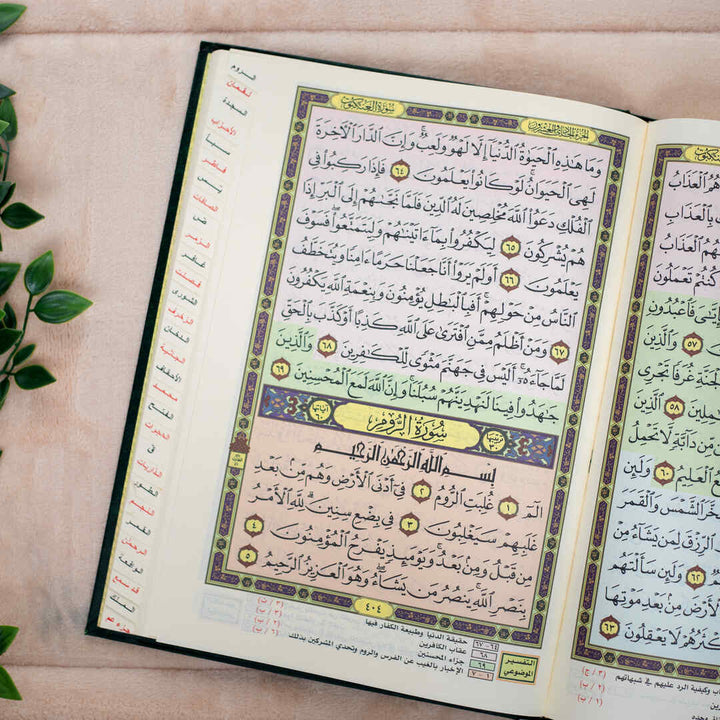 سورة العنكبوت
الْعَذَابُ
بِالْعَذَابِ
الْعَذَابُ
كُنتُمْ تَعْمَلُونَ
فَاعْبُدُونِ
٥٧ وَالَّذِينَ
غُرَفًا تَجْرِي
٥٨ الَّذِينَ
دَابَّةٍ لَّا تَحْمِلُ
الْعَلِيمُ ٦٠ وَلَئِن
الشَّمْسَ وَالْقَمَرَ
الرِّزْقَ لِمَن يَشَاءُ مِنْ
٦٢ وَلَئِن سَأَلْتَهُم
الْأَرْضَ مِن بَعْدِ مَوْتِهَا
لَا يَعْقِلُونَ ٦٣
وكيفية الرد عليهم في شبهاتهم
الجزء الحادي والعشرون
سورة العنكبوت
وَمَا هَٰذِهِ الْحَيَوٰةُ الدُّنْيَا إِلَّا لَهْوٌ وَلَعِبٌ ۚ وَإِنَّ الدَّارَ الْآخِرَةَ
لَهِيَ الْحَيَوَانُ ۚ لَوْ كَانُوا يَعْلَمُونَ ٦٤ فَإِذَا رَكِبُوا فِي
الْفُلْكِ دَعَوُا اللَّهَ مُخْلِصِينَ لَهُ الدِّينَ فَلَمَّا نَجَّىٰهُمْ إِلَى الْبَرِّ إِذَا
هُمْ يُشْرِكُونَ ٦٥ لِيَكْفُرُوا بِمَا ءَاتَيْنَٰهُمْ وَلِيَتَمَتَّعُوا ۖ فَسَوْفَ
يَعْلَمُونَ ٦٦ أَوَلَمْ يَرَوْا أَنَّا جَعَلْنَا حَرَمًا ءَامِنًا وَيُتَخَطَّفُ
النَّاسُ مِنْ حَوْلِهِمْ ۚ أَفَبِالْبَٰطِلِ يُؤْمِنُونَ وَبِنِعْمَةِ اللَّهِ يَكْفُرُونَ
٦٧ وَمَنْ أَظْلَمُ مِمَّنِ افْتَرَىٰ عَلَى اللَّهِ كَذِبًا أَوْ كَذَّبَ بِالْحَقِّ
لَمَّا جَاءَهُ ۚ أَلَيْسَ فِي جَهَنَّمَ مَثْوًى لِّلْكَٰفِرِينَ ٦٨ وَالَّذِينَ
جَٰهَدُوا فِينَا لَنَهْدِيَنَّهُمْ سُبُلَنَا ۚ وَإِنَّ اللَّهَ لَمَعَ الْمُحْسِنِينَ ٦٩
ترتيبها ٣٠ سُورَةُ الرُّومِ آياتها ٦٠
بِسْمِ اللَّهِ الرَّحْمَٰنِ الرَّحِيمِ
الٓمٓ ١ غُلِبَتِ الرُّومُ ٢ فِي أَدْنَى الْأَرْضِ وَهُم مِّنْ بَعْدِ
غَلَبِهِمْ سَيَغْلِبُونَ ٣ فِي بِضْعِ سِنِينَ ۗ لِلَّهِ الْأَمْرُ
مِن قَبْلُ وَمِنْ بَعْدُ ۚ وَيَوْمَئِذٍ يَفْرَحُ الْمُؤْمِنُونَ ٤
بِنَصْرِ اللَّهِ ۚ يَنصُرُ مَن يَشَاءُ ۖ وَهُوَ الْعَزِيزُ الرَّحِيمُ ٥
٤٠٤
التفسير الموضوعي
٦٤ - ٦٧ حقيقة الدنيا وطبيعة الكفار فيها
٦٨ عقاب الكافرين
٦٩ جزاء المحسنين
١ - ٧ الإخبار بالغيب عن الفرس والروم وتحدي المشركين بذلك
الروم
لقمان
السجدة
الأحزاب
سبأ
فاطر
يس
الصافات
ص
الزمر
غافر
فصلت
الشورى
الزخرف
الدخان
الجاثية
الأحقاف
محمد
الفتح
الحجرات
ق
الذاريات
الطور
النجم
القمر
الرحمن
الواقعة
قد سمع
الملك
جزء عم